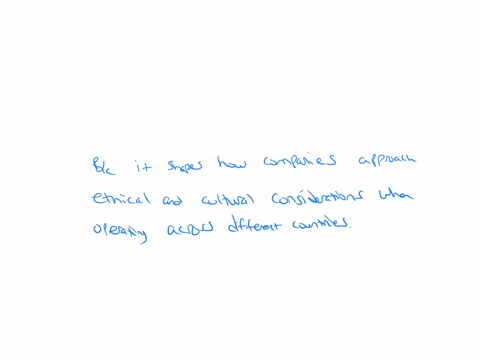 B/c it shapes how companies approach
ethical and cultural considerations when
operating across different countries.